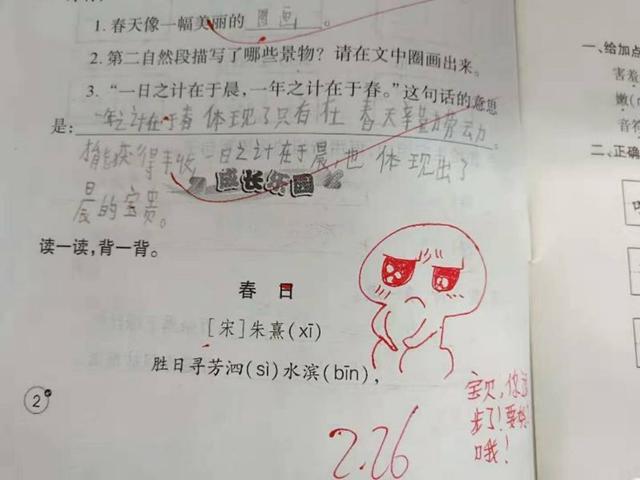 1. 春天像一幅美丽的 图画 。
2. 第二自然段描写了哪些景物?请在文中圈画出来。
3. “一日之计在于晨,一年之计在于春。”这句话的意思
是: 一年之计在于春 体现了只有在 春天辛勤劳动
才能获得丰收,一日之计在于晨,也 体现出了
成长乐园
晨的宝贵。
读一读,背一背。
春 日
[宋]朱熹(xī)
胜日寻芳泗(sì)水滨(bīn),
2
2.26
宝贝,你
步了!要
哦!
一、给加点
害羞
嫩(
音符
二、正确